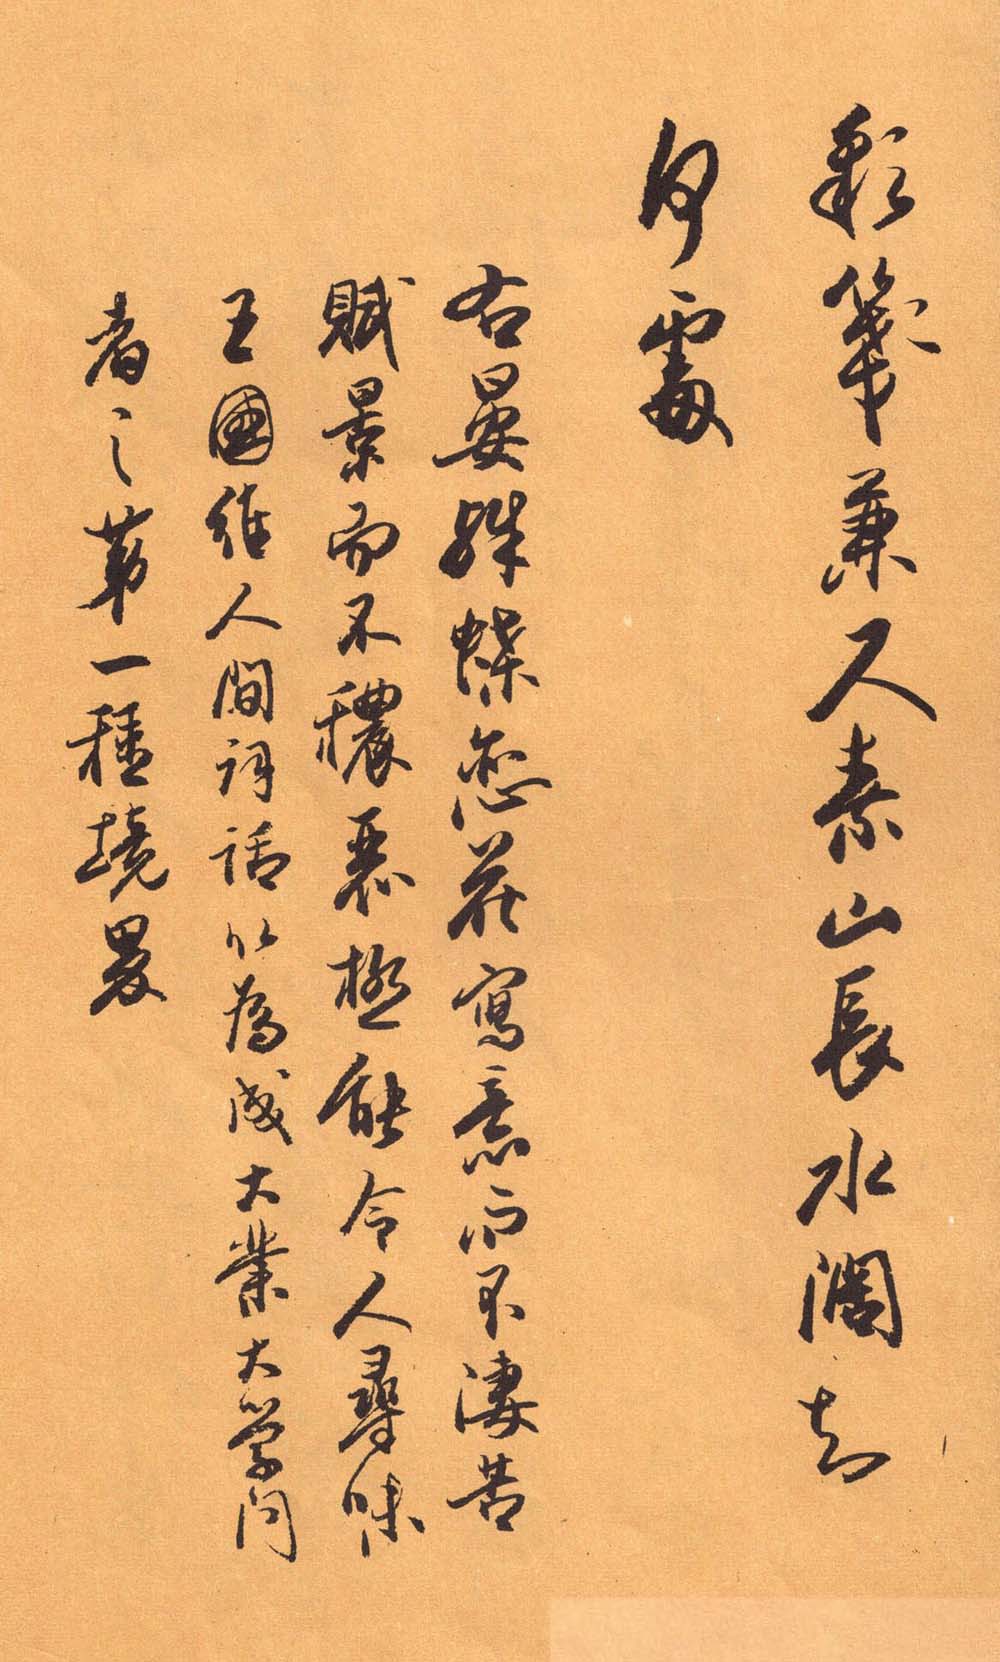 彩箋兼尺素山長水闊知
何處
右晏殊蝶恋花寫意而不淒苦
賦景而不穠麗極能令人尋味
王國維人間詞話以為成大業大學問
者之第一種境界